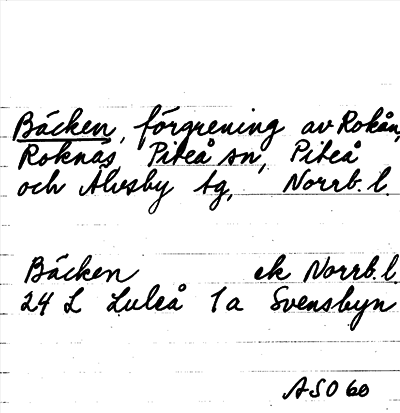 Bäcken, förgrening av Rokån,
Roknäs, Piteå sn, Piteå
och Älvsby tg, Norrb. l.
Bäcken ek Norrb. l.
24 L Luleå 1 a Svensbyn
ASO 60